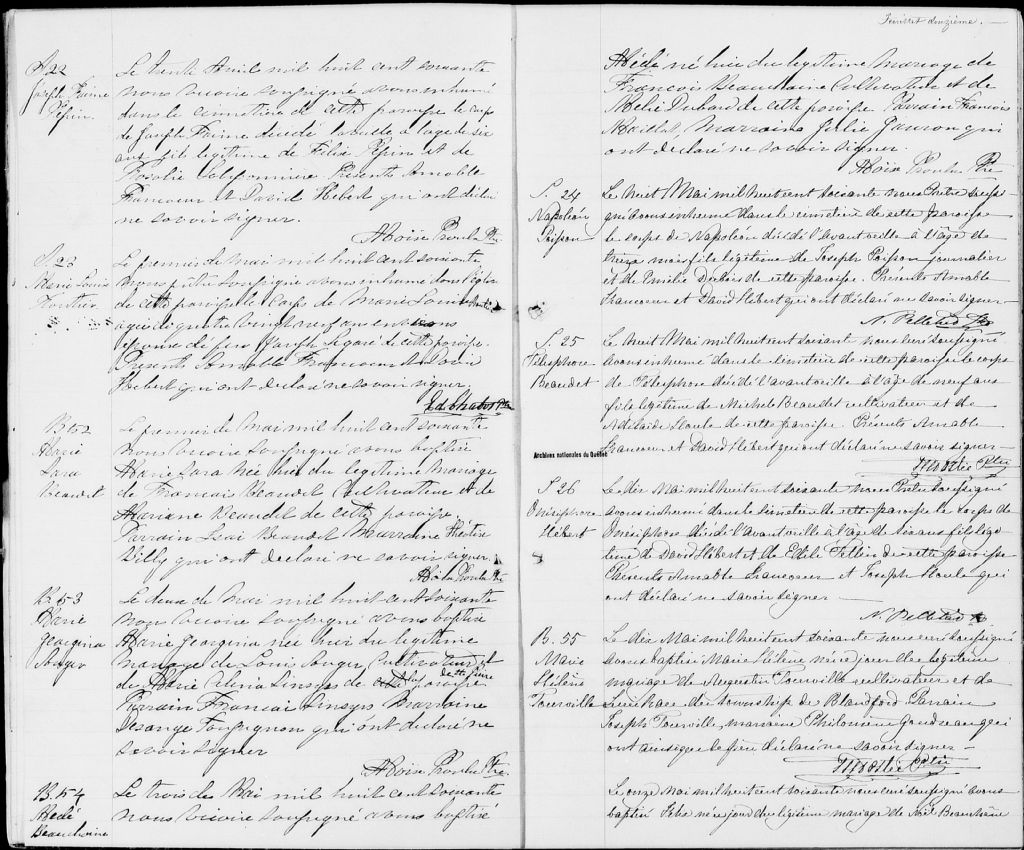 S. 22
Joseph Prime
Pépin.
Le trente Avril mil huit cent soixante
nous vicaire soussigné avons inhumé
dans le cimetière de cette paroisse le corps
de Joseph Prime décédé la veille à l'age de six
ans fils légitime de Félix Pépin et de
Rosalie Présents Amable
Francoeur et David Hébert qui ont déclaré
ne savoir signer.
Moïse Proulx Ptre
S. 23
Marie Louise
Le premier de Mai mil huit cent soixante
nous prêtre soussigné avons inhumé dans l'église
de cette paroisse le corps de Marie Louise
agée de quatre vingt neuf ans environ
épouse de feu Joseph Sigard de cette paroisse.
Présents Amable Francoeur et David
Hébert qui ont déclaré ne savoir signer.
Ed. Chabot Ptre
B. 52
Marie
Lara
Beaudet
Le premier de Mai mil huit cent soixante
nous vicaire soussigné avons baptisé
Marie Lara née hier du légitime mariage
de Francois Beaudet Cultivateur et de
Mariane Beaudet de cette paroisse
Parrain Isaï Beaudet Marraine
Billy qui ont déclaré ne savoir signer
Moïse Proulx Ptre
B. 53
Marie
Georgina
Auger
Le deux de Mai mil huit cent soixante
nous vicaire soussigné avons baptisé
Marie Georgina née hier du légitime
mariage de Louis Auger Cultivateur et
de Marie Célina de cette paroisse
Parrain Francois Marraine
Desange qui ont déclaré ne
savoir signer
Moïse Proulx Ptre.
B. 54
Médé
Beauchaine
Le trois de Mai mil huit cent soixante
nous vicaire soussigné avons baptisé
Feuillet douzième. —
Médé né hier du légitime mariage de
Francois Beauchaine Cultivateur et de
de cette paroisse Parrain Francois
Marraine Julie qui
ont déclaré ne savoir signer.
Moïse Proulx Ptre
S. 24
Napoléon
Poisson
Le huit Mai mil huit cent soixante nous Prêtre soussi-
gné avons inhumé dans le cimetière de cette paroisse
le corps de Napoléon décédé l'avant veille à l'âge de
treize mois fils légitime de Joseph Poisson journalier
et de Emilie Dubois de cette paroisse. Présents Amable
Francoeur et David Hébert qui ont déclaré ne savoir signer —
N. Pelletier Ptre
S. 25
Télesphore
Beaudet
Le huit Mai mil huit cent soixante nous curé soussigné
avons inhumé dans le cimetière de cette paroisse le corps
de Télesphore décédé l'avant veille à l'âge de neuf ans
fils légitime de Michel Beaudet cultivateur et de
Adélaïde Houle de cette paroisse. Présents Amable
Francoeur et David Hébert qui ont déclaré ne savoir signer —
Archives nationales du Québec
S. 26
Onésiphore
Hébert
Le dix Mai mil huit cent soixante nous Prêtre soussigné
avons inhumé dans le cimetière de cette paroisse le corps de
Onésiphore décédé l'avant veille à l'âge de six ans fils légi-
time de David Hébert et de Edile Tellier de cette paroisse
Présents Amable Francoeur et Joseph Houle qui
ont déclaré ne savoir signer —
N. Pelletier
B. 55
Marie
Hélène
Tourville
Le dix Mai mil huit cent soixante nous curé soussigné
avons baptisé Marie Hélène née ce jour du légitime
mariage de Augustin Tourville cultivateur et de
du township de Blandford Parrain
Joseph Tourville, marraine Philomène Goudreau qui
ont ainsi que le père déclaré ne savoir signer —
Le onze Mai mil huit cent soixante nous curé soussigné avons
baptisé né ce jour du légitime mariage de Noël Beauchaine